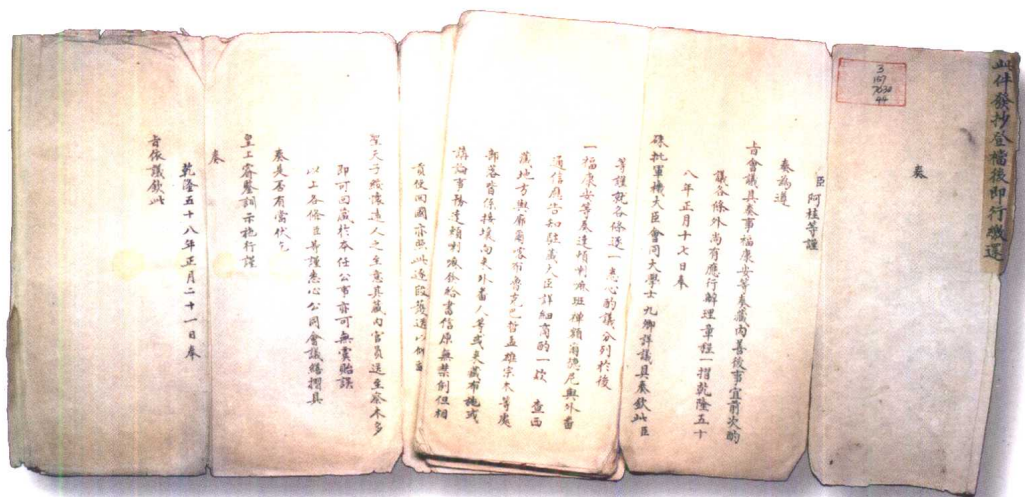 此件發抄登檔後即行職送
3
167
7630
44
奏
臣阿桂等謹
奏為遵
旨會議具奏事福康安等奏藏內善後事宜前次酌
議各條外尚有應行辦理章程一摺乾隆五十
八年正月十七日奉
硃批軍機大臣會同大學士九卿詳議具奏欽此臣
等謹就各條逐一悉心酌議分列於後
一福康安等奏達賴喇嘛班禪額爾德尼與外番
通信應告知駐藏大臣詳細商酌一欵 查西
藏地方與廓爾喀布魯克巴哲孟雄宗木等處
部落皆係接壤向來外番人等或來藏布施或
講論事務達賴喇嘛發給書信原無禁例但相
貢使回國亦照此逐段護送以仰副
聖天子綏懷遠人之至意其藏內官員送至察木多
即可回藏於本任公事亦可無虞貽誤
以上各條臣等謹悉心公同會議繕摺具
奏是否有當伏乞
皇上睿鑒訓示施行謹
奏
乾隆五十八年正月二十一日奉
旨依議欽此